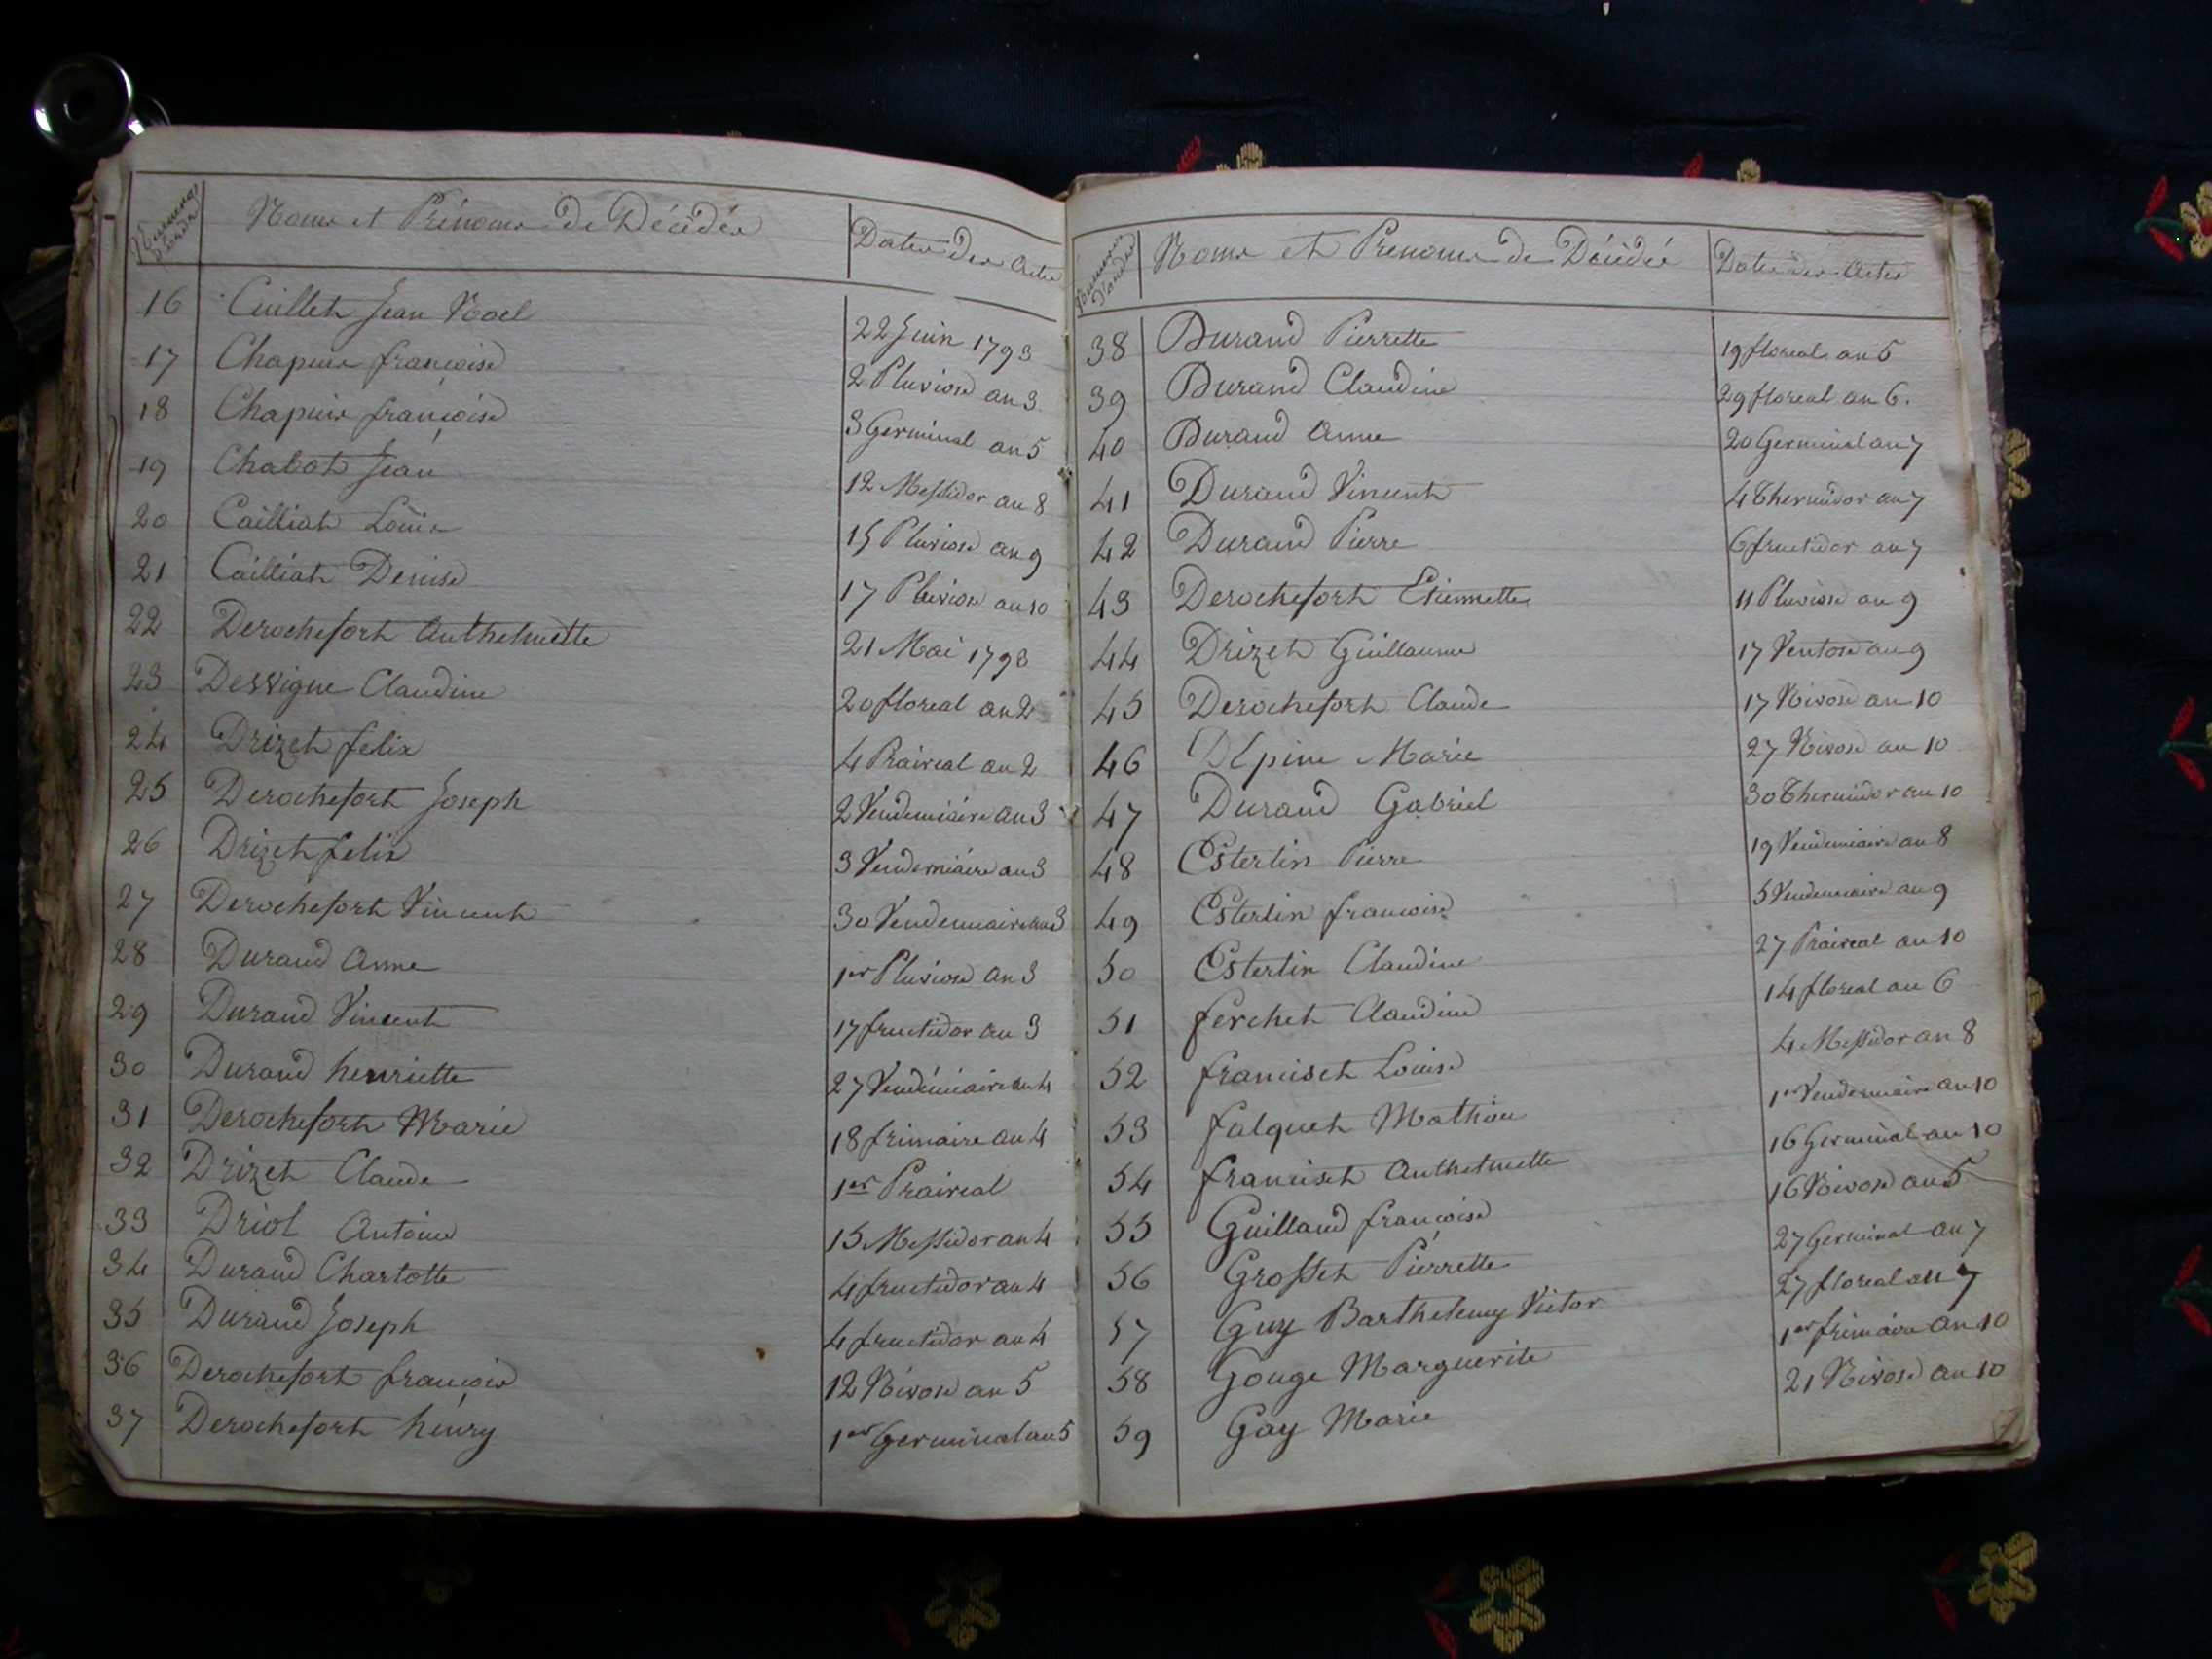 Numeros d'ordre Noms et Prénoms de Décédés Dates des Actes
16 Cuillet Jean Noel 22 Juin 1793
17 Chapuis françoise 2 Pluviose an 3
18 Chapuis françoise 3 Germinal an 5
19 Chabot Jean 12 Messidor an 8
20 Cailliat Louis 15 Pluviose an 9
21 Cailliat Denise 17 Pluviose an 10
22 Derochefort Anthelmette 21 Mai 1793
23 Dessigne Claudine 20 floreal an 2
24 Drizet felix 4 Praireal an 2
25 Derochefort Joseph 2 Vendemiaire an 3
26 Drizet felix 3 Vendemiaire an 3
27 Derochefort Vincent 30 Vendemiaire an 3
28 Durand Anne 1er Pluviose an 3
29 Durand Vincent 17 fructidor an 3
30 Durand henriette 27 Vendémiaire an 4
31 Derochefort Marie 18 frimaire an 4
32 Drizet Claude 1er Praireal
33 Driol Antoine 15 Messidor an 4
34 Durand Charlotte 4 fructidor an 4
35 Durand Joseph 4 fructidor an 4
36 Derochefort françois 12 Nivose an 5
37 Derochefort hénry 1er Germinal an 5
Numeros d'ordre Noms et Prenoms de Décédés Dates des Actes
38 Durand Pierrette 19 floreal an 5
39 Durand Claudine 29 floreal an 6.
40 Durand Anne 20 Germinal an 7
41 Durand Vincent 4 Thermidor an 7
42 Durand Pierre 6 fructidor an 7
43 Derochefort Etiennette 11 Pluviose an 9
44 Drizet Guillaume 17 Ventose an 9
45 Derochefort Claude 17 Nivose an 10
46 Dlpine Marie 27 Nivose an 10
47 Durand Gabriel 30 Thermidor an 10
48 Esterlin Pierre 19 Vendemiaire an 8
49 Esterlin francoise 5 Vendemiaire an 9
50 Esterlin Claudine 27 Praireal an 10
51 ferchet Claudine 14 floreal an 6
52 franciset Louise 4 Messidor an 8
53 falquet Mathieu 1er Vendemiaire an 10
54 franciset Anthelmette 16 Germinal an 10
55 Guilland francoise 16 Nivose an 5
56 Grosset Piérrette 27 Germinal an 7
57 Guy Barthelemy Victor 27 floreal an 7
58 Gouge Marguerite 1er frimaire an 10
59 Gay Marie 21 Nivose an 10